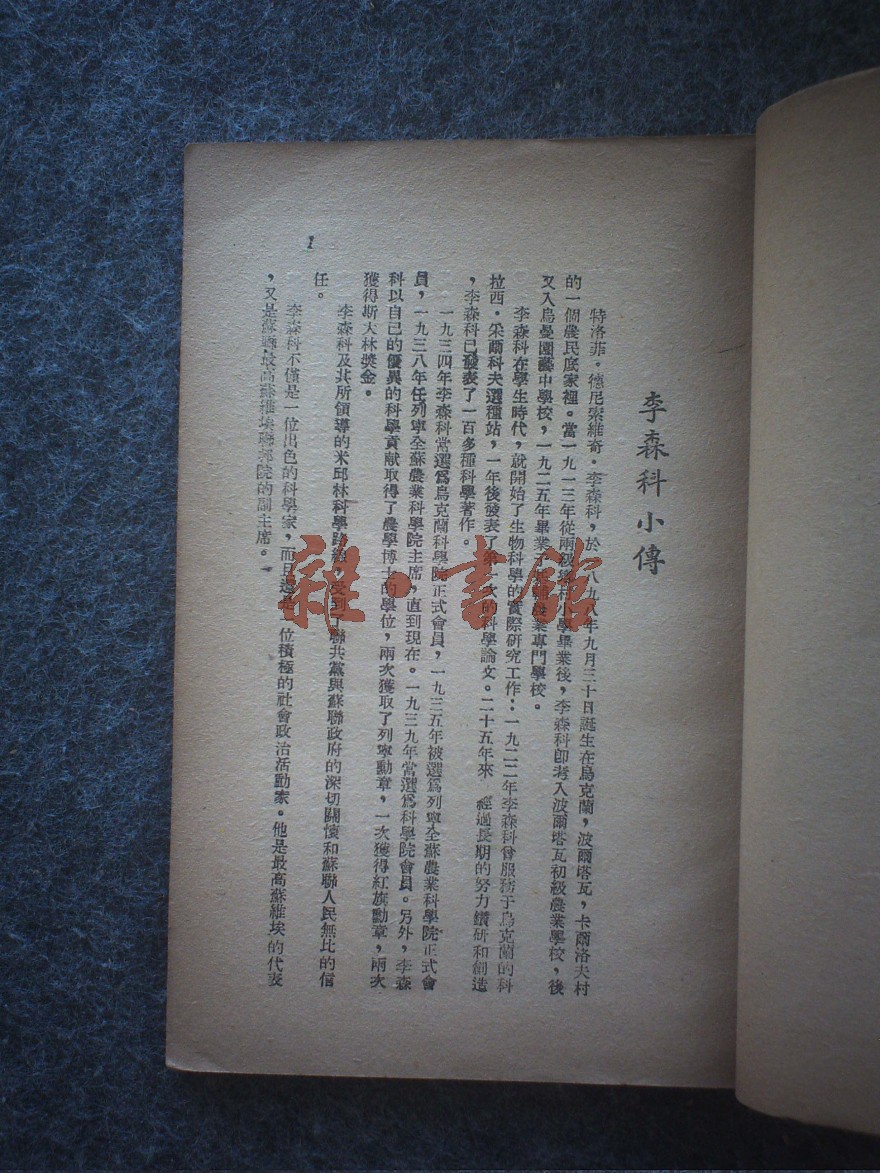 李森科小傳
特洛菲·德尼索維奇·李森科，於一八九八年九月三十日誕生在烏克蘭，波爾塔瓦，卡爾洛夫村
的一個農民底家裡。當一九一三年從兩級鄉村小學畢業後，李森科卽考入波爾塔瓦初級農業學校，後
又入烏曼園藝中學校，一九二五年畢業于基輔農業專門學校。
李森科在學生時代，就開始了生物科學的實際研究工作：一九二二年李森科曾服務于烏克蘭的科
拉西·采爾科夫選種站，一年後發表了第一次的科學論文。二十五年來 經過長期的努力鑽研和創造
，李森科已發表了一百多種科學著作。
一九三四年李森科當選爲烏克蘭科學院正式會員，一九三五年被選爲列寧全蘇農業科學院正式會
員，一九三八年任列寧全蘇農業科學院主席，直到現在。一九三九年當選爲科學院會員。另外，李森
科以自己的優異的科學貢献取得了農學博士的學位，兩次獲取了列寧勳章，一次獲得紅旗勳章，兩次
獲得斯大林獎金。
李森科及其所領導的米邱林科學路線，受到了聯共黨與蘇聯政府的深切關懷和蘇聯人民無比的信
任。
李森科不僅是一位出色的科學家，而且還是一位積極的社會政治活動家。他是最高蘇維埃的代表
，又是蘇聯最高蘇維埃聯邦院的副主席。
1
雜·書館